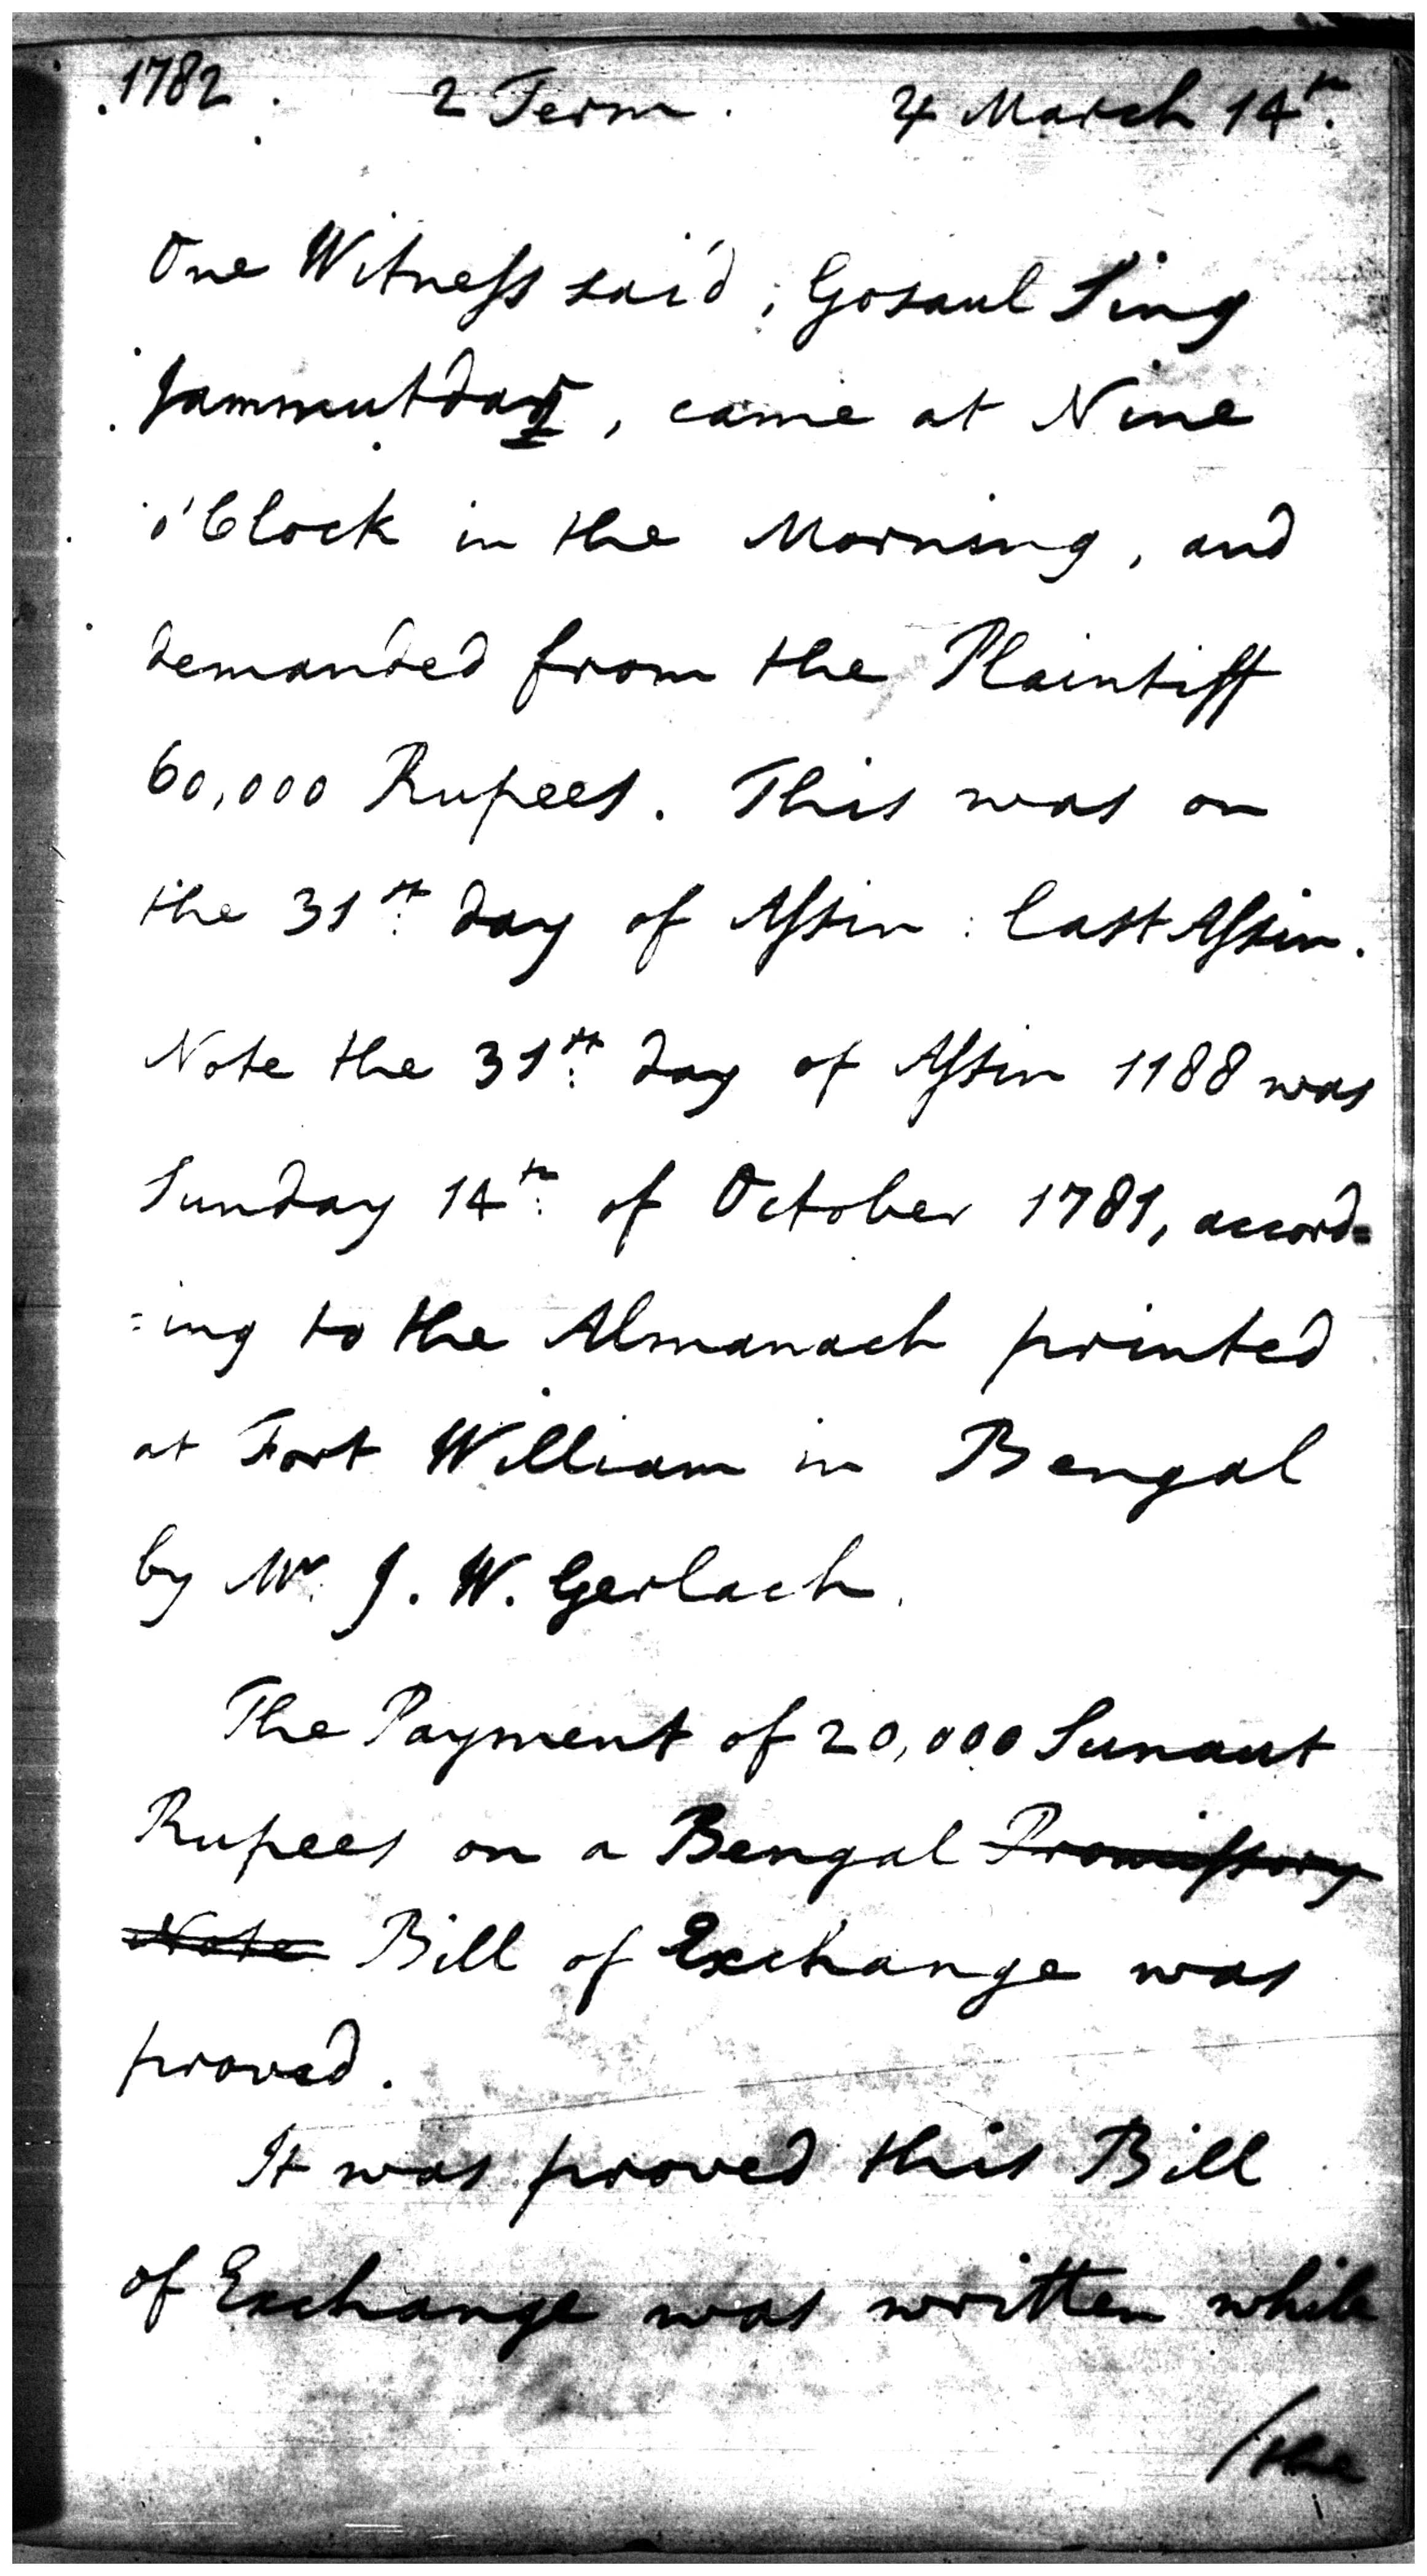 1782. 2 Term. ♃ March 14th.
One Witness said, Gosaul Sing
Jammutdar, came at Nine
o'Clock in the Morning, and
demanded from the Plaintiff
60,000 Rupees. This was on
the 31st day of Assin: last Assin.
Note the 31st day of Assin 1188 was
Sunday 14th of October 1781, accord=
=ing to the Almanach printed
at Fort William in Bengal
by Mr. J. W. Gerlach.
The Payment of 20,000 Sunaut
Rupees on a Bengal Promissory
Note Bill of Exchange was
proved.
It was proved this Bill
of Exchange was written while
/the